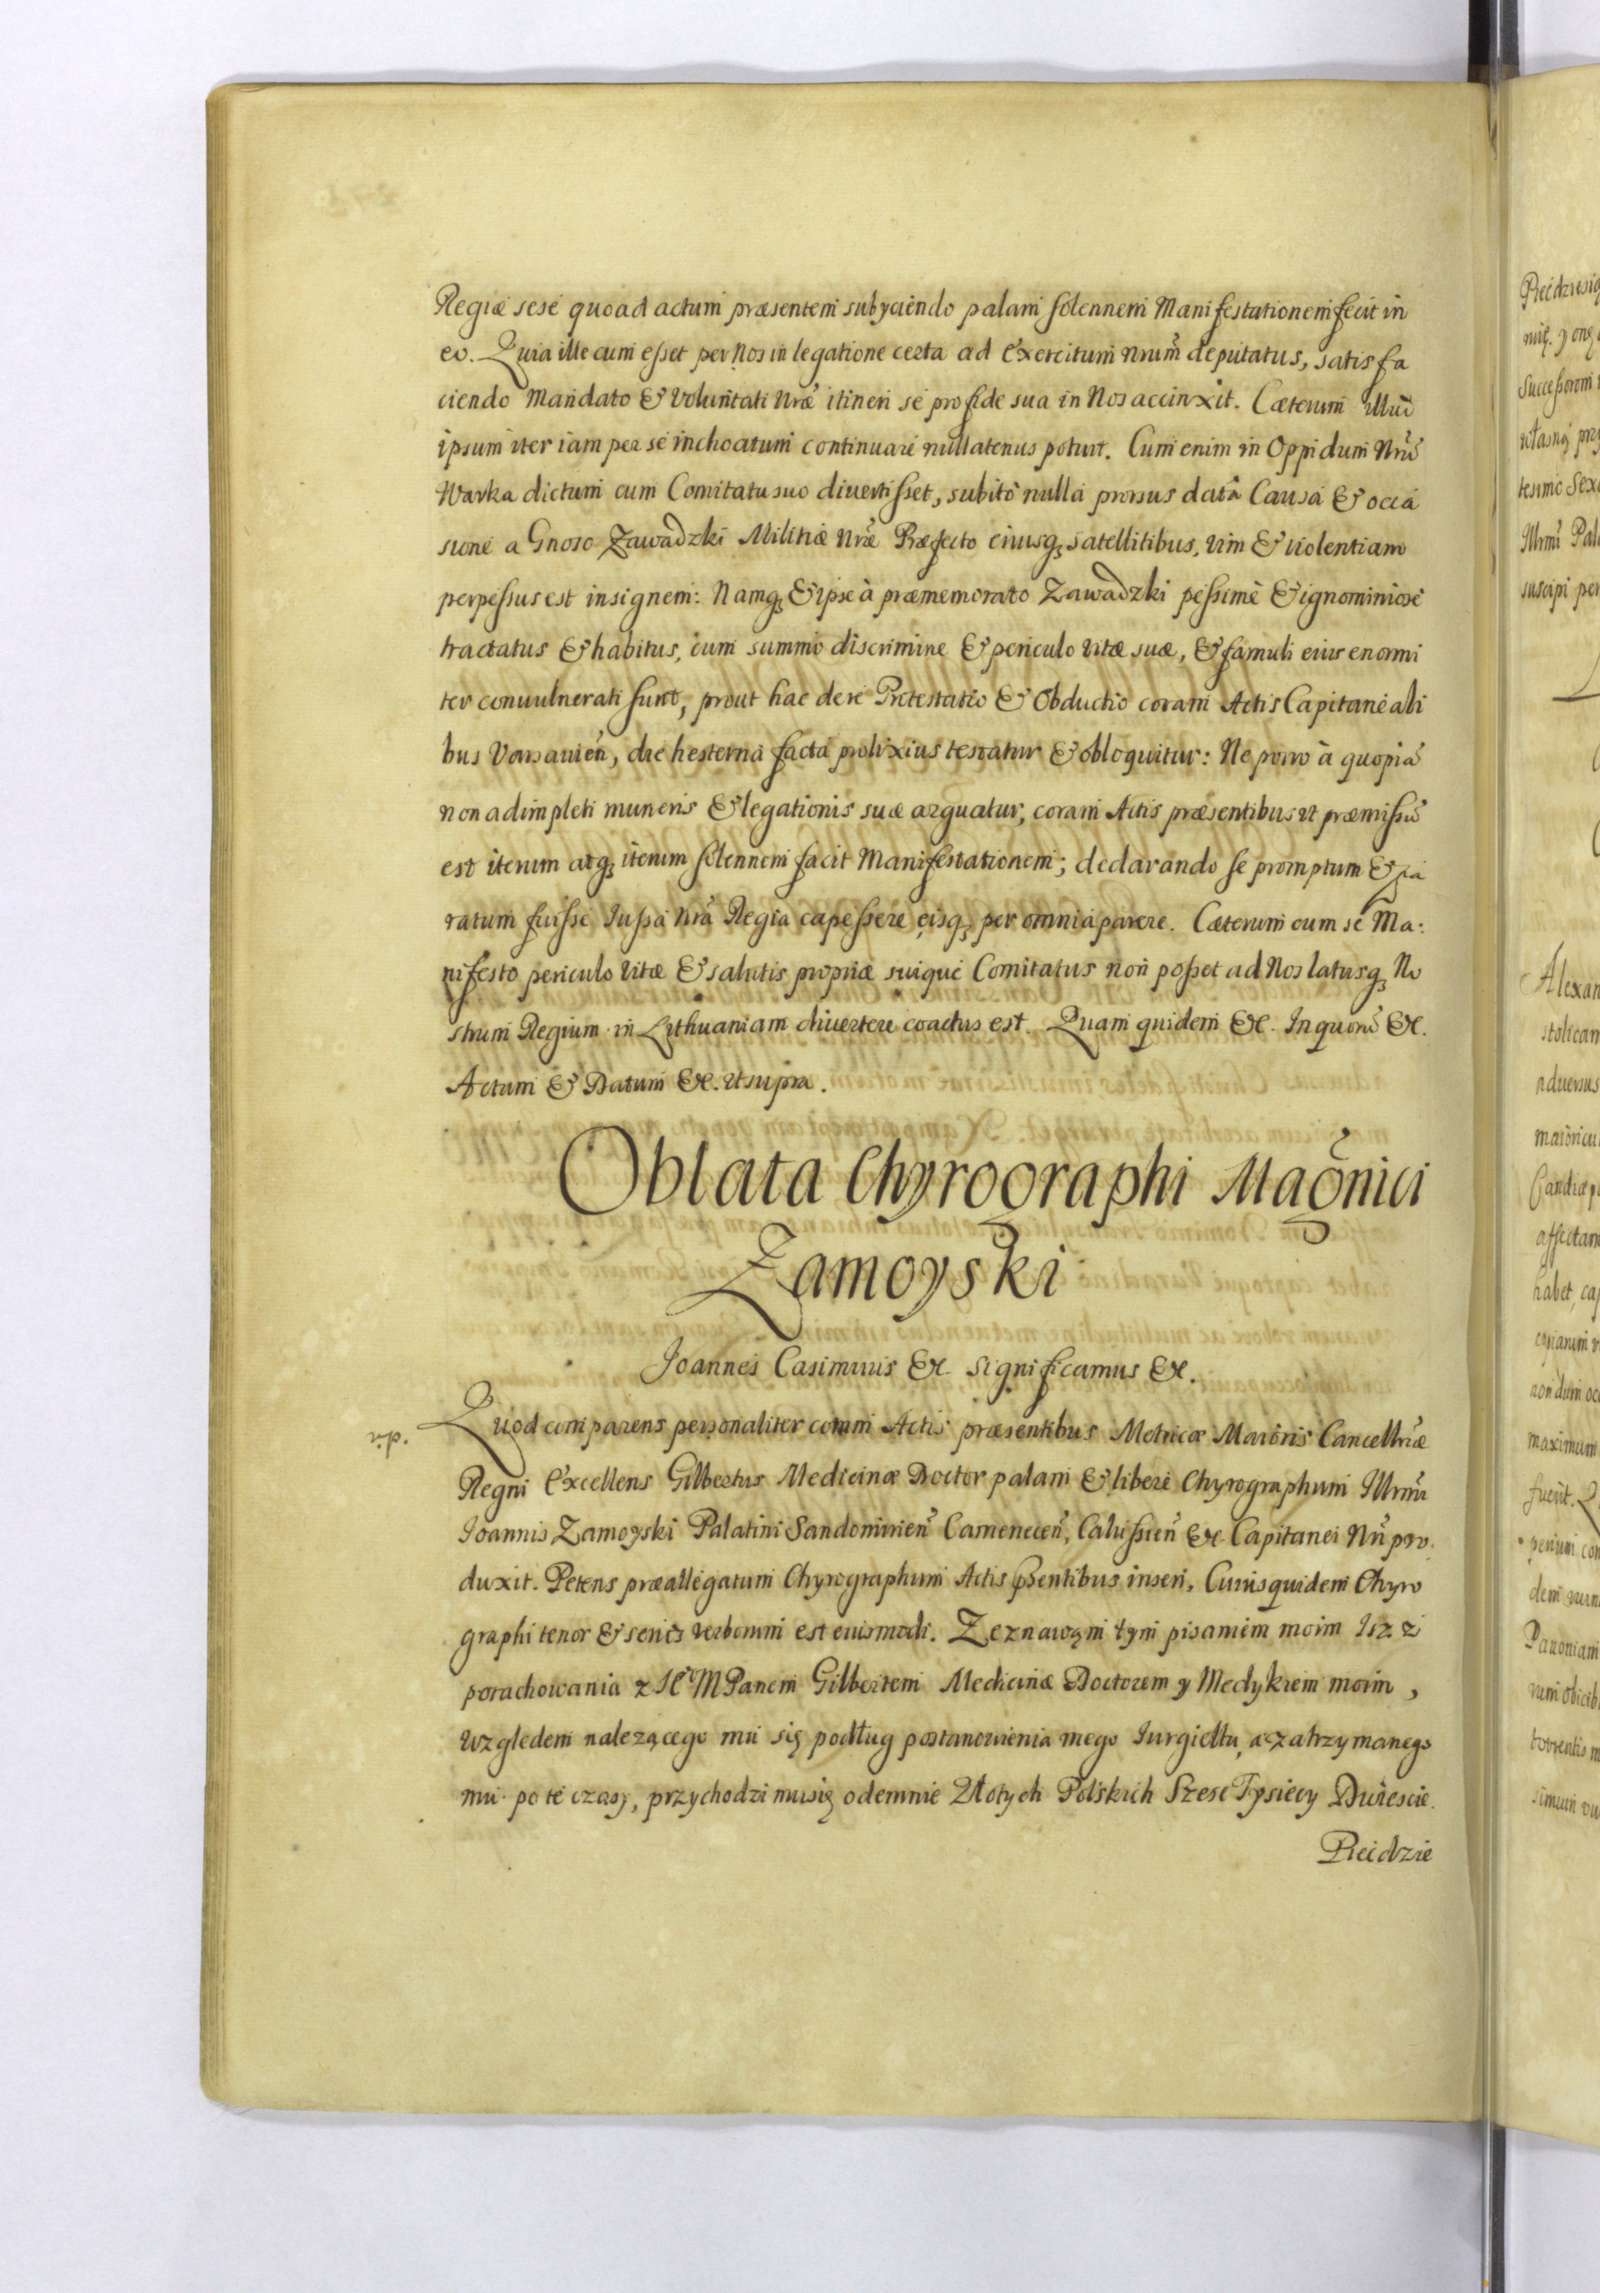 Regiæ sese quoad actum præsentem subyciendo palam solennem Manifestationem fecit in
eo. Quia ille cum esset per Nos in legatione certa ad Exercitum nrum̃ deputatus, satisfa
ciendo Mandato & Voluntati Nræ̃ itineri se pro fide sua in Nos accinxit. Cæterum illud
ipsum iter iam per se inchoatum continuare nullatenus potuit. Cum enim in Oppidum Nrũ
Warka dictum cum Comitatu suo divertisset, subitò nullâ prorsus datâ Causâ & occa
sione a Gnoso Zawadzki Militiæ Nræ̃ Præfecto eiusq; satellitibus, vim & violentiam
perpessus est insignem: Namq; & ipse à præmemorato Zawadzki pessimè & ignominiosè
tractatus & habitus, cum summo discrimine & periculo vitæ suæ, & famuli eius enormi
ter convulnerati sunt, prout hac de re Protestatio & Obductio coram Actis Capitaneali
bus Varsavien̄, die hesterna facta prolixius testatur & obloquitur: Ne porro à quopiã
non adimpleti muneris & legationis suæ arguatur, coram Actis præsentibus ut præmissũ
est iterum atq; iterum solennem facit Manifestationem; declarando se promptum & pa
ratum fuisse Iussa Nrã Regia capessere eisq; per omnia parere. Cæterum cum se Ma:
nifesto periculo vitæ & salutis propriæ suique Comitatus non posset ad Nos latusq; No
strum Regium in Lithuaniam divertere coactus est. Quam quidem &c. In quorũ &c.
Actum & Datum &c. ut supra.
Oblata Chyrographi Magnici
Zamoyski
Joannes Casimirus &c. significamus &c.
Quod comparens personaliter coram Actis præsentibus Metricæ Maioris Cancellriæ
Regni Excellens Gilbertus Medicinæ Doctor palam & liberè Chyrographum Illrmi
Joannis Zamoyski Palatini Sandomirien̄ Camenecen̄, Calussien̄ &c. Capitanei Nri pro
duxit. Petens præallegatum Chyrographum Actis p̄sentibus inseri, Cuius quidem Chyro
graphi tenor & series verborum est eiusmodi. Zeznawam tym pisaniem moim Isz z
porachowania z JE°M Panem Gilbertem Medicinæ Doctorem y Medykiem moim,
względem należącego mu się podług postanowienia mego Jurgieltu, a zatrzymanego
mu po te czasy, przychodzi mu się odemnie Złotych Polskich Szesc Tysięcy Dwiescie
Pięcdzie